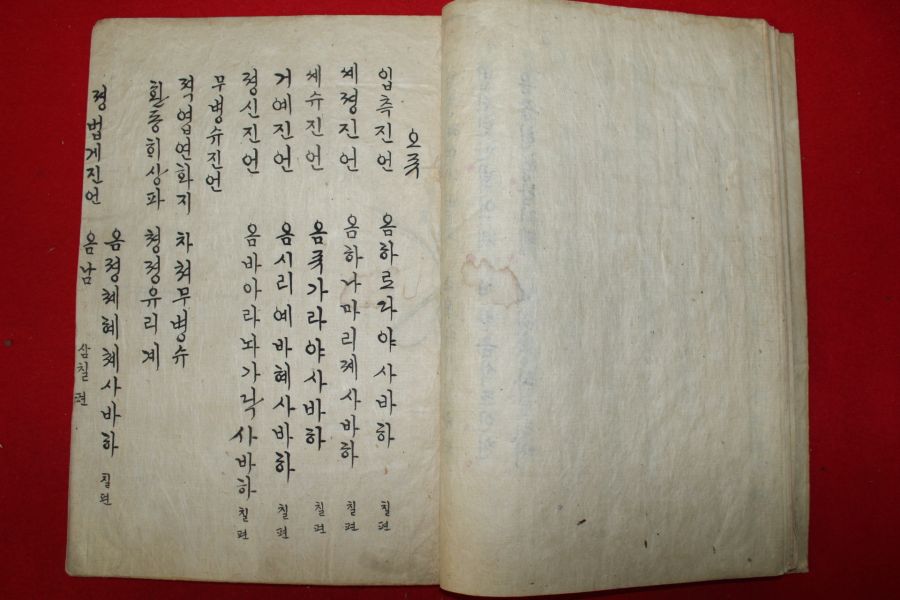 오쥭
입측진언 옴하로다야사바하 칠편
세정진언 옴하나마리제사바하 칠편
세슈진언 옴쥭가라야사바하 칠편
거예진언 옴시리예바혜사바하 칠편
정신진언 옴바아라놔가닥사바하 칠편
무병슈진언
적엽연화지 차쳐무병슈
환동회상파 청정유리계
옴정체혜체사바하 칠편
정법계진언 옴남 삼칠편